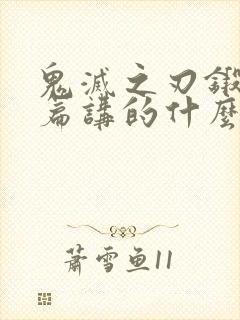 鬼滅之刃鍛
篇講的什麼
蕭雪魚11